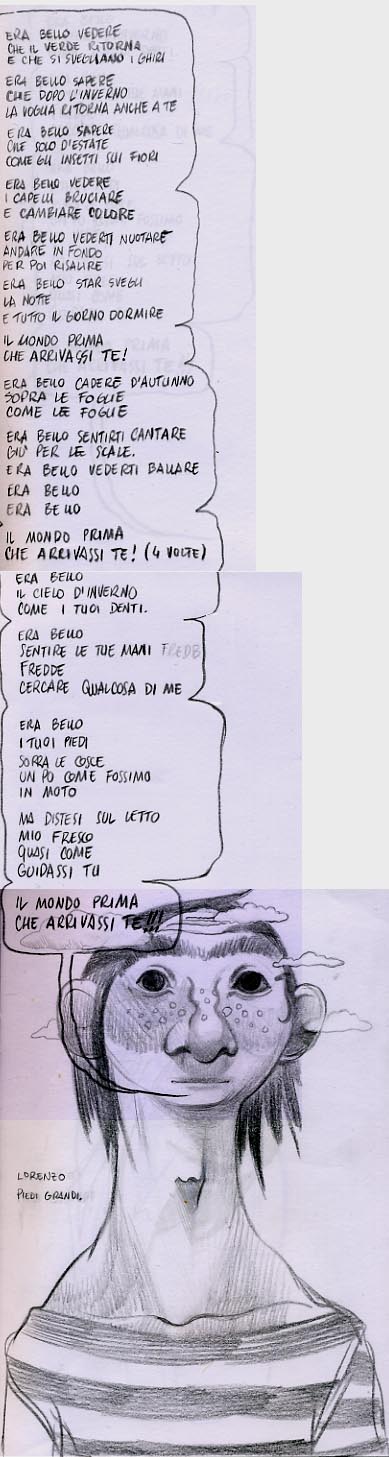 ERA BELLO VEDERE
CHE IL VERDE RITORNA
E CHE SI SVEGLIANO I GHIRI
ERA BELLO SAPERE
CHE DOPO L'INVERNO
LA VOGLIA RITORNA ANCHE A TE
ERA BELLO SAPERE
CHE SOLO D'ESTATE
COME GLI INSETTI SUI FIORI
ERA BELLO VEDERE
I CAPELLI BRUCIARE
E CAMBIARE COLORE
ERA BELLO VEDERTI NUOTARE
ANDARE IN FONDO
PER POI RISALIRE
ERA BELLO STAR SVEGLI
LA NOTTE
E TUTTO IL GIORNO DORMIRE
IL MONDO PRIMA
CHE ARRIVASSI TE!
ERA BELLO CADERE D'AUTUNNO
SOPRA LE FOGLIE
COME LE FOGLIE
ERA BELLO SENTIRTI CANTARE
GIU' PER LE SCALE.
ERA BELLO VEDERTI BALLARE
ERA BELLO
ERA BELLO
IL MONDO PRIMA
CHE ARRIVASSI TE! (4 VOLTE)
ERA BELLO
IL CIELO D'INVERNO
COME I TUOI DENTI.
ERA BELLO
SENTIRE LE TUE MANI
FREDDE
CERCARE QUALCOSA DI ME
ERA BELLO
I TUOI PIEDI
SOPRA LE COSCE
UN PO COME FOSSIMO
IN MOTO
MA DISTESI SUL LETTO
MIO FRESCO
QUASI COME
GUIDASSI TU
IL MONDO PRIMA
CHE ARRIVASSI TE!!!
LORENZO
PIEDI GRANDI.